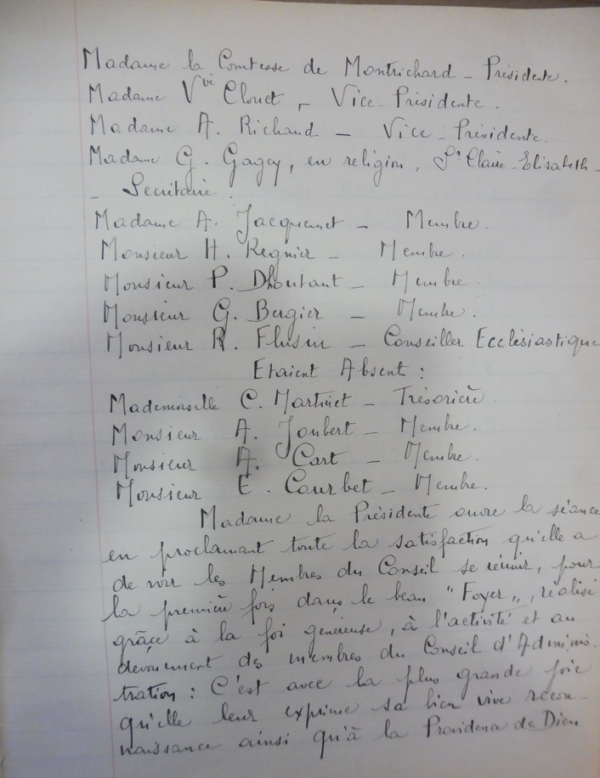 Madame la Comtesse de Montrichard - Présidente.
Madame Vve Clouet, Vice-Présidente.
Madame A. Richard - Vice-Présidente.
Madame G. Gagey, en religion, Sr Claire-Elisabeth -
- Secrétaire.
Madame A. Jacquemet - Membre.
Monsieur H. Regnier - Membre.
Monsieur P. Dhoutaut - Membre.
Monsieur G. Bergier - Membre.
Monsieur R. Flusin - Conseiller Ecclèsiastique
Etaient Absent :
Mademoiselle C. Martinet - Trésorière.
Monsieur A. Joubert - Membre.
Monsieur A. Cart - Membre.
Monsieur E. Courbet - Membre.
Madame la Présidente ouvre la séance
en proclamant toute la satisfaction qu'elle a
de voir les Membres du Conseil se réunir, pour
la première fois dans le beau "Foyer", réalisé
grâce à la foi généreuse, à l'activité et au
dévouement des membres du Conseil d'Adminis-
tration : C'est avec la plus grande joie
qu'elle leur exprime sa bien vive recon-
naissance ainsi qu'à la Providence de Dieu